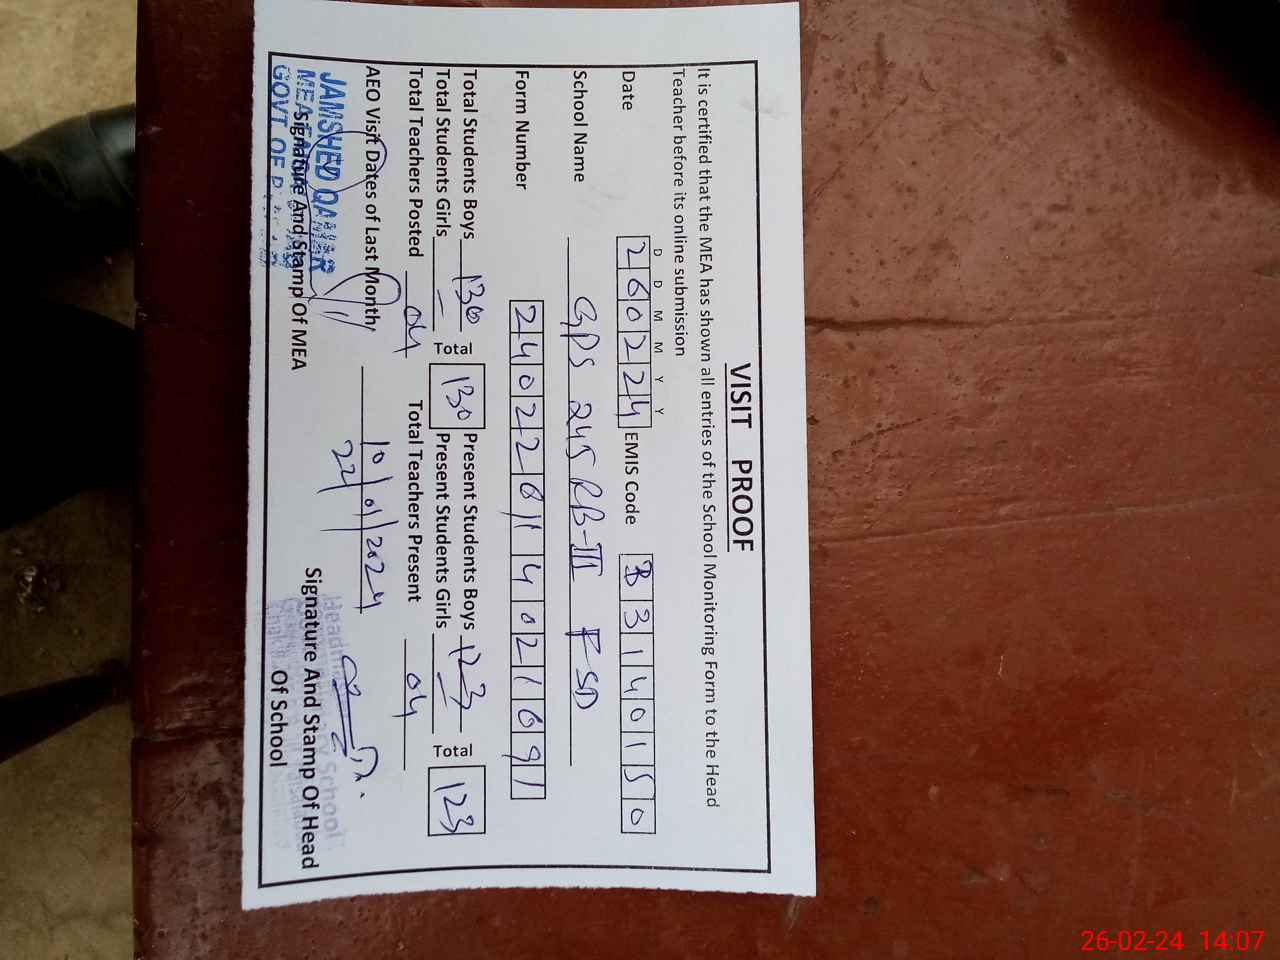 VISIT PROOF
It is certified that the MEA has shown all entries of the School Monitoring Form to the Head
Teacher before its online submission
D D M M Y Y
Date 260224 EMIS Code 33140150
School Name GPS 245 RB-III FSD
Form Number
Total Students Boys 130 Total 130 Present Students Boys 123 Total 123
Total Students Girls – Present Students Girls –
Total Teachers Posted 04 Total Teachers Present 04
AEO Visit Dates of Last Month, 10/01/2024
22
JAMSHED QAMAR
MEA
GOVT OF
Signature And Stamp Of MEA
School
Signature And Stamp Of Head
Of School
26-02-24 14:07